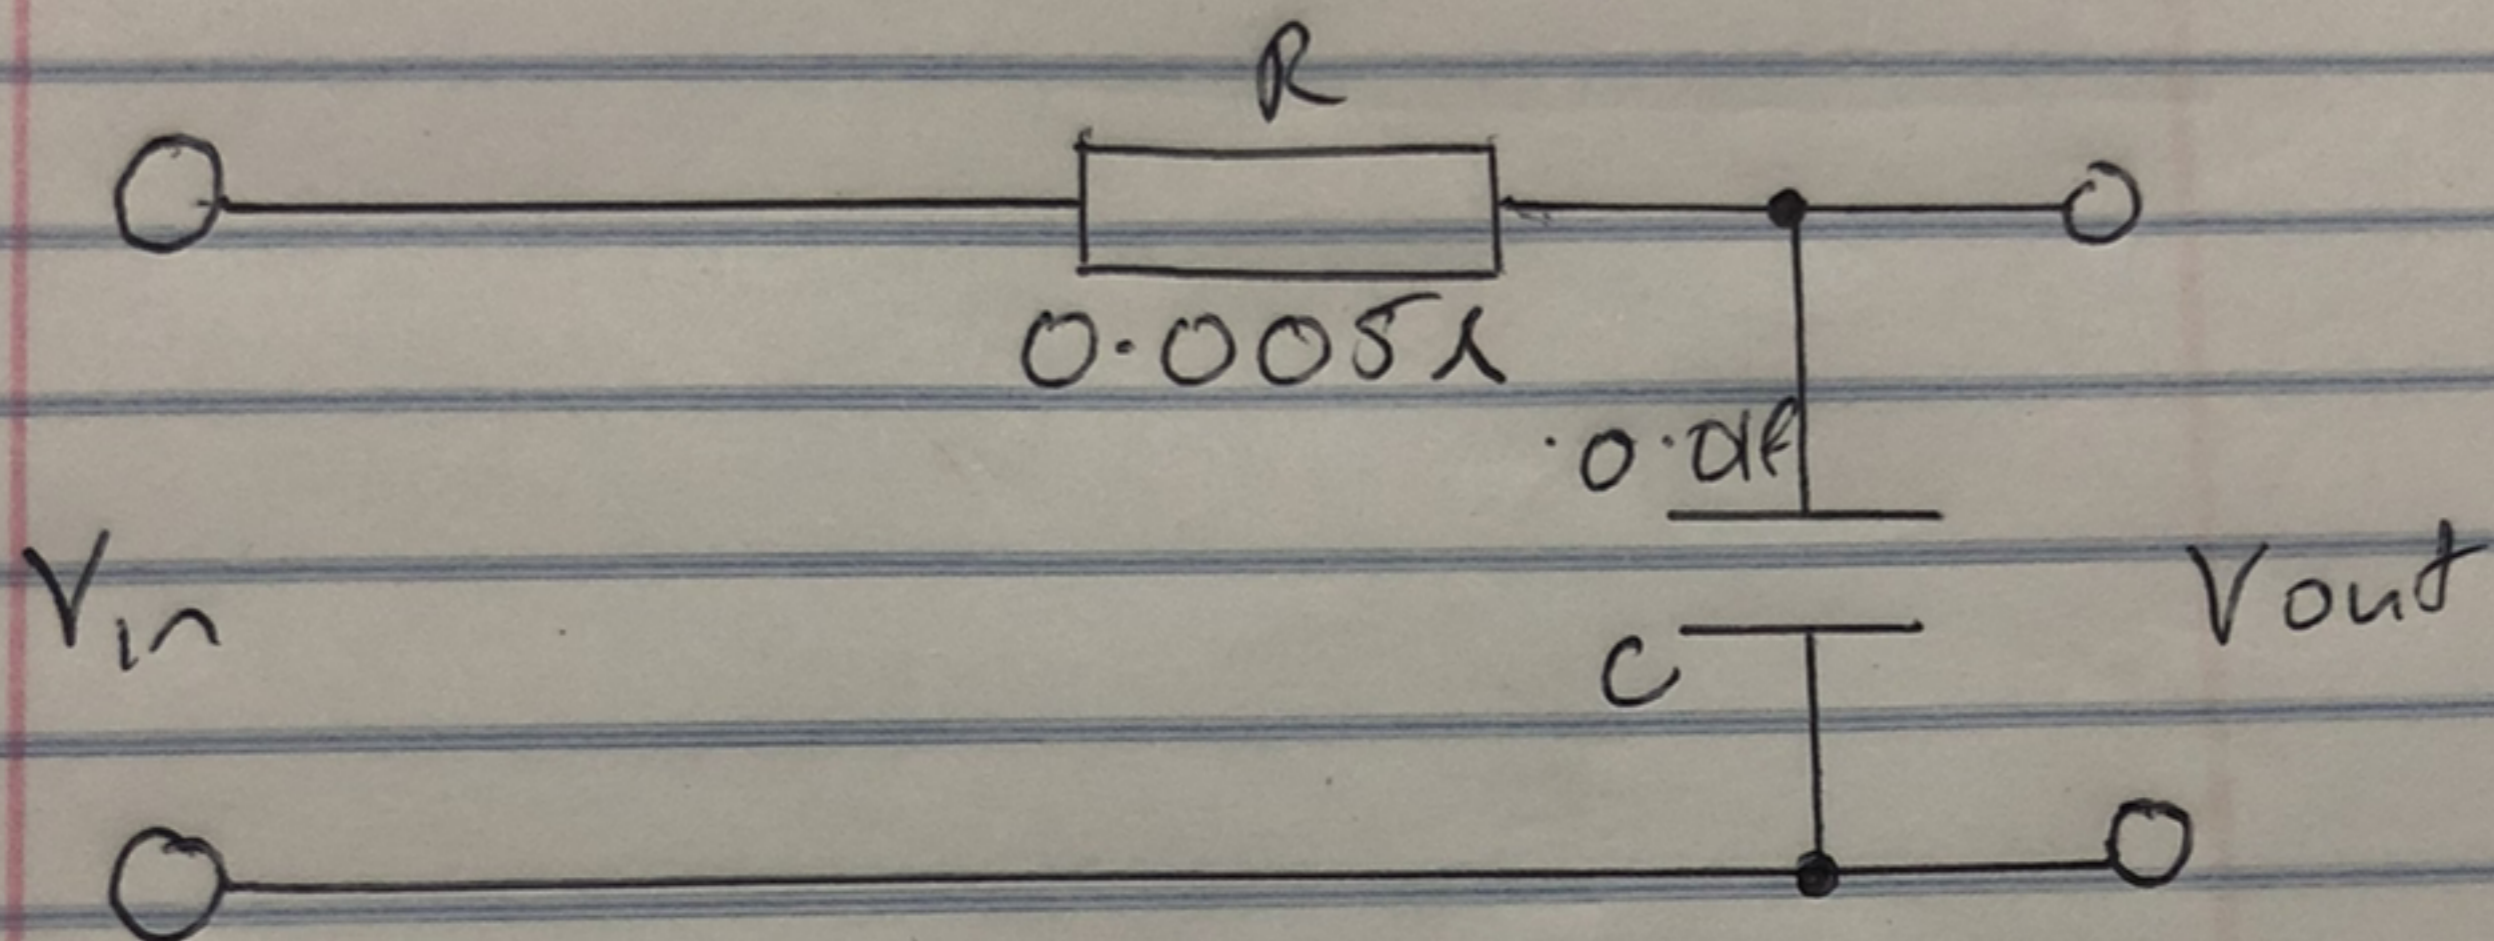 R
0.005Ω
0.01F
Vin
Vout
C